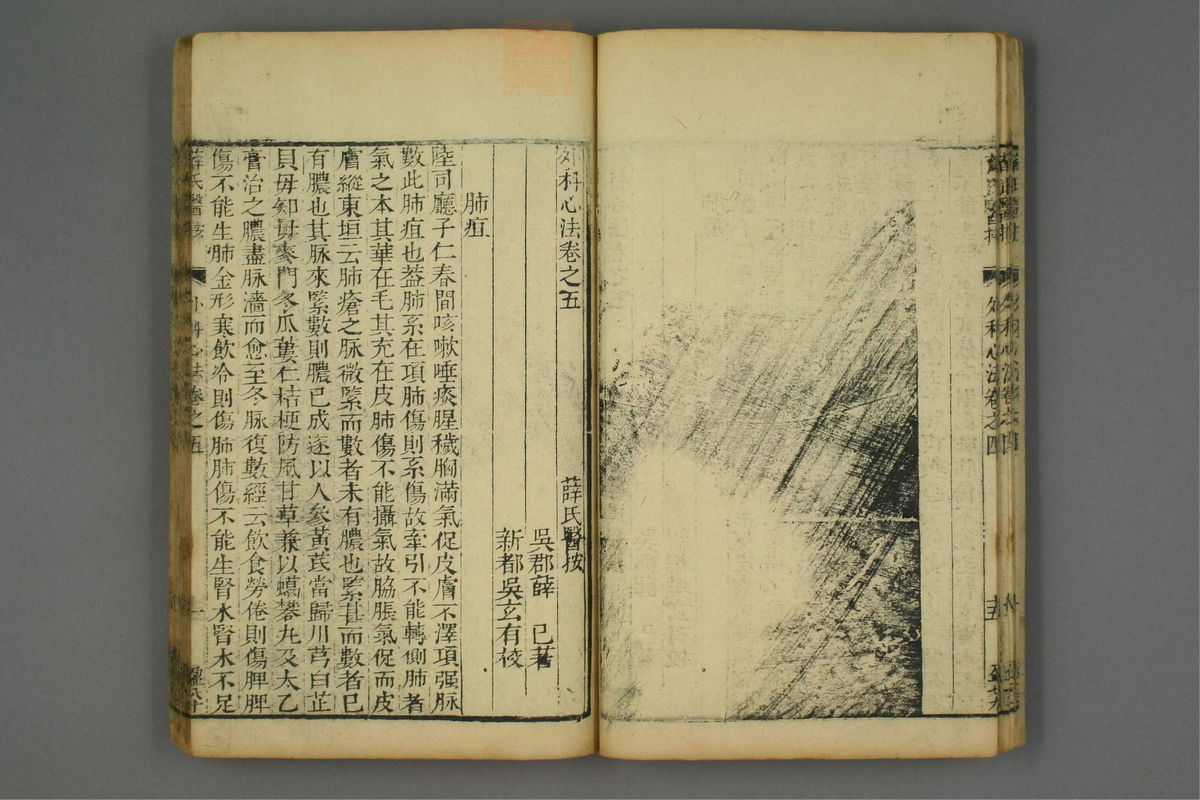 外科心法卷之四
外科心法卷之五
薛氏醫按
吳郡薛 已著
新都吳玄有校
肺疽
陸司廳子仁春間咳嗽唾痰腥穢胸滿氣促皮膚不澤項强脉
數此肺疽也葢肺系在項肺傷則系傷故牽引不能轉側肺者
氣之本其華在毛其充在皮肺傷不能攝氣故脇脹氣促而皮
膚縱東垣云肺瘡之脉微緊而數者未有膿也緊甚而數者已
有膿也其脉來緊數則膿已成遂以人參黃芪當歸川芎白芷
貝毋知毋麥門冬瓜蔞仁桔梗防風甘草兼以蠟礬丸及太乙
膏治之膿盡脉濇而愈至冬脉復數經云飲食勞倦則傷脾脾
傷不能生肺金形寒飲冷則傷肺肺傷不能生腎水腎水不足
薛氏醫按 外科心法卷之五 一